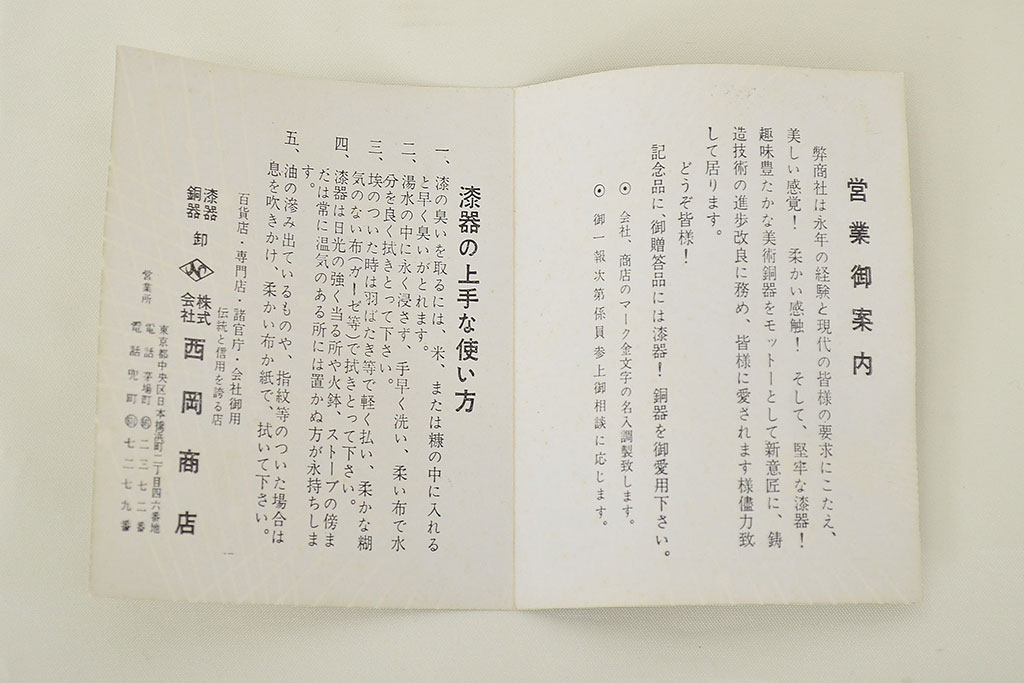 営業御案内
弊商社は永年の経験と現代の皆様の要求にこたえ、
美しい感覚！　柔かい感触！　そして、堅牢な漆器！
趣味豊たかな美術銅器をモットーとして新意匠に、鋳
造技術の進歩改良に務め、皆様に愛されます様儘力致
して居ります。
どうぞ皆様！
記念品に、御贈答品には漆器！　銅器を御愛用下さい。
⦿　会社、商店のマーク金文字の名入調製致します。
⦿　御一報次第係員参上御相談に応じます。
漆器の上手な使い方
一、漆の臭いを取るには、米、または糠の中に入れる
と早く臭いがとれます。
二、湯水の中に永く浸さず、手早く洗い、柔い布で水
分を良く拭きとって下さい。
三、埃のついた時は羽ばたき等で軽く払い、柔かな糊
気のない布（ガーゼ等）で拭きとって下さい。
四、漆器は日光の強く当る所や火鉢、ストーブの傍ま
たは常に温気のある所には置かぬ方が永持ちしま
す。
五、油の滲み出ているものや、指紋等のついた場合は
息を吹きかけ、柔かい布か紙で、拭いて下さい。
百貨店・専門店・諸官庁・会社御用
伝統と信用を誇る店
漆器
銅器　卸　株式会社　西岡商店
営業所　東京都中央区日本橋浜町二丁目四六番地
電話茅場町二三七二番
電話兜町七二七九番